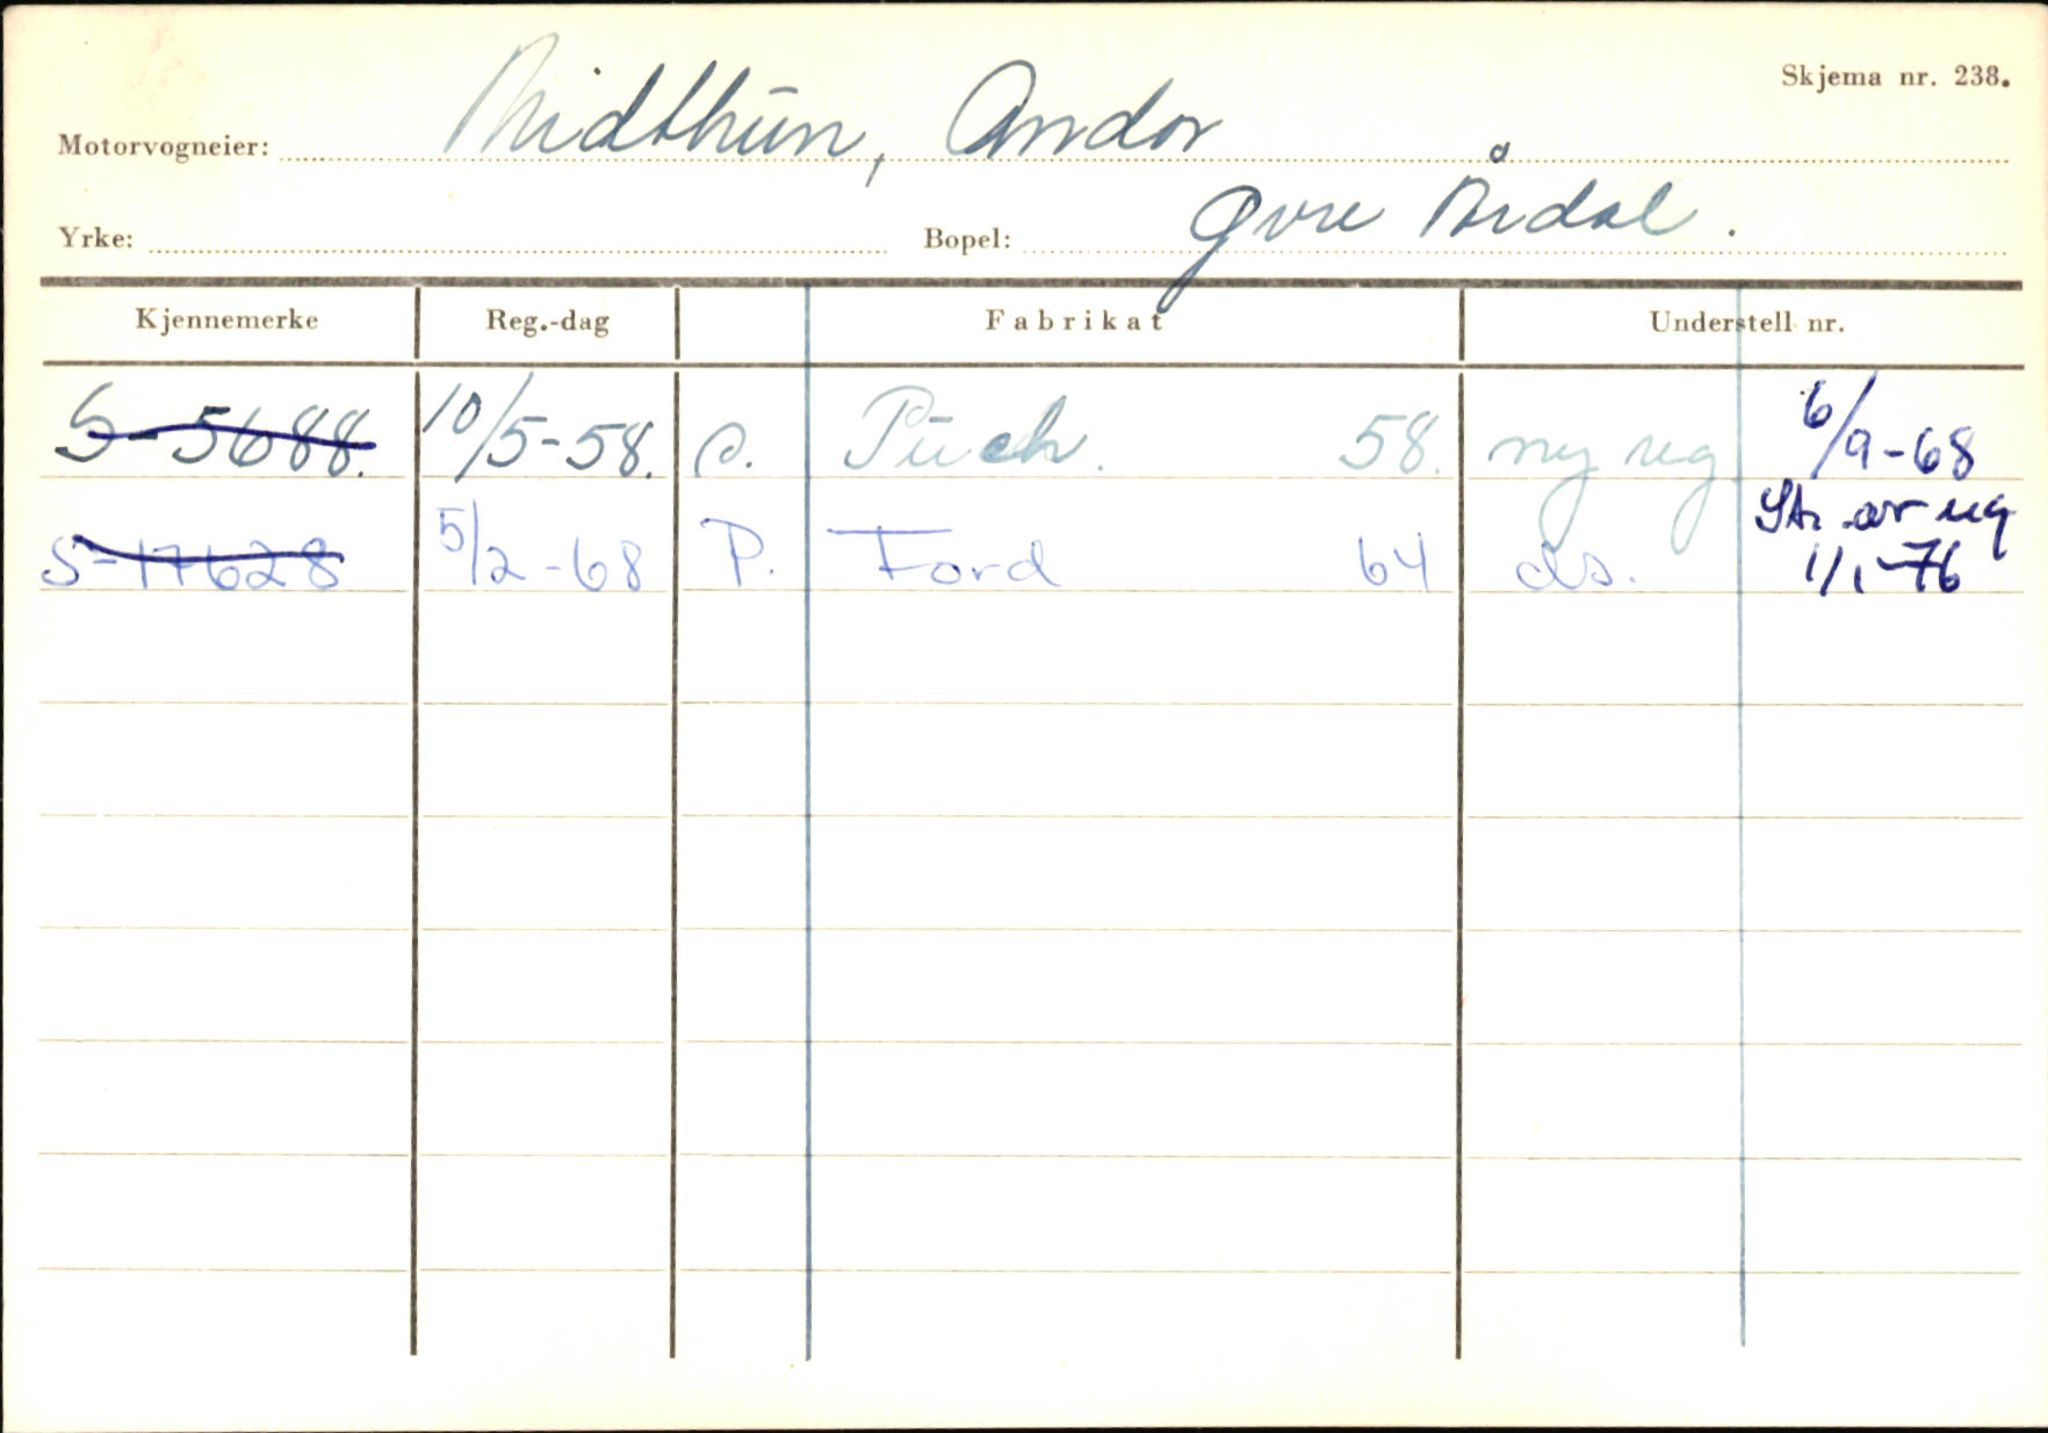 Skjema nr. 238.
Motorvogneier: Midthun, Andor
Yrke: Bopel: Øvre Årdal.
Kjennemerke Reg.-dag Fabrikat Understell nr.
S-5688. 10/5-58. Puch. 58. ny reg 6/9-68
S-17628 5/2-68 P. Ford 64 ds. Str. av reg 1/1-76